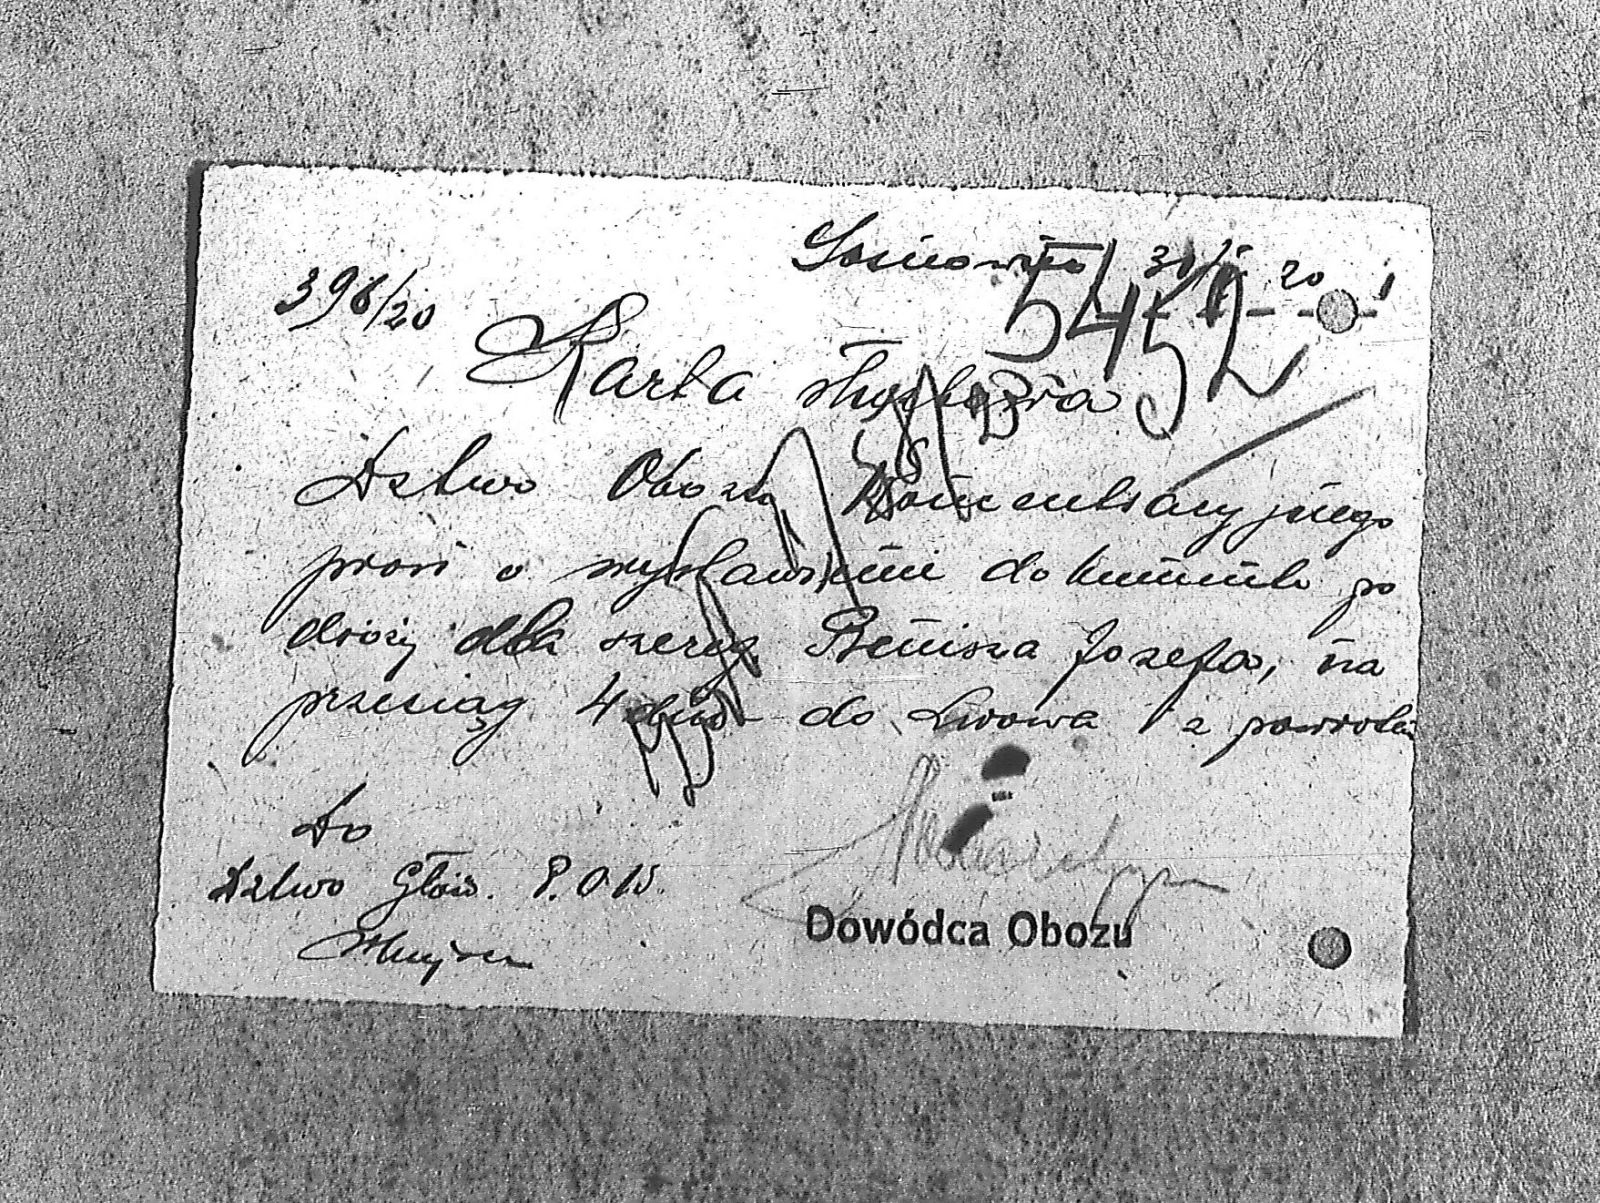 Sosnowiec 31/V 20
398/20
5452
Karta służbowa
Dztwo Obozu Koncentracyjnego
prosi o wystawienie dokumentu po
dróży dla szereg Benisza Józefa, na
przeciąg 4 dni do Lwowa z powrotem
Do
Dztwo Głów. P.O.W.
Dowódca Obozu